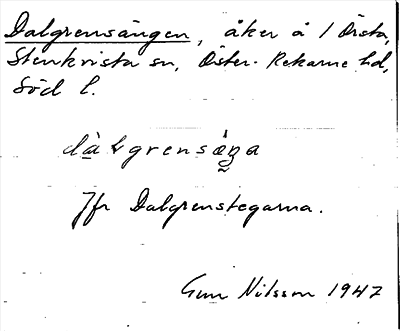 Dalgrensängen, åker å 1 Örsta,
Stenkvista sn, Öster-Rekarne hd,
Söd l.
dàlgrensäŋa
Jfr Dalgrenstegarna.
Gun Nilsson 1947